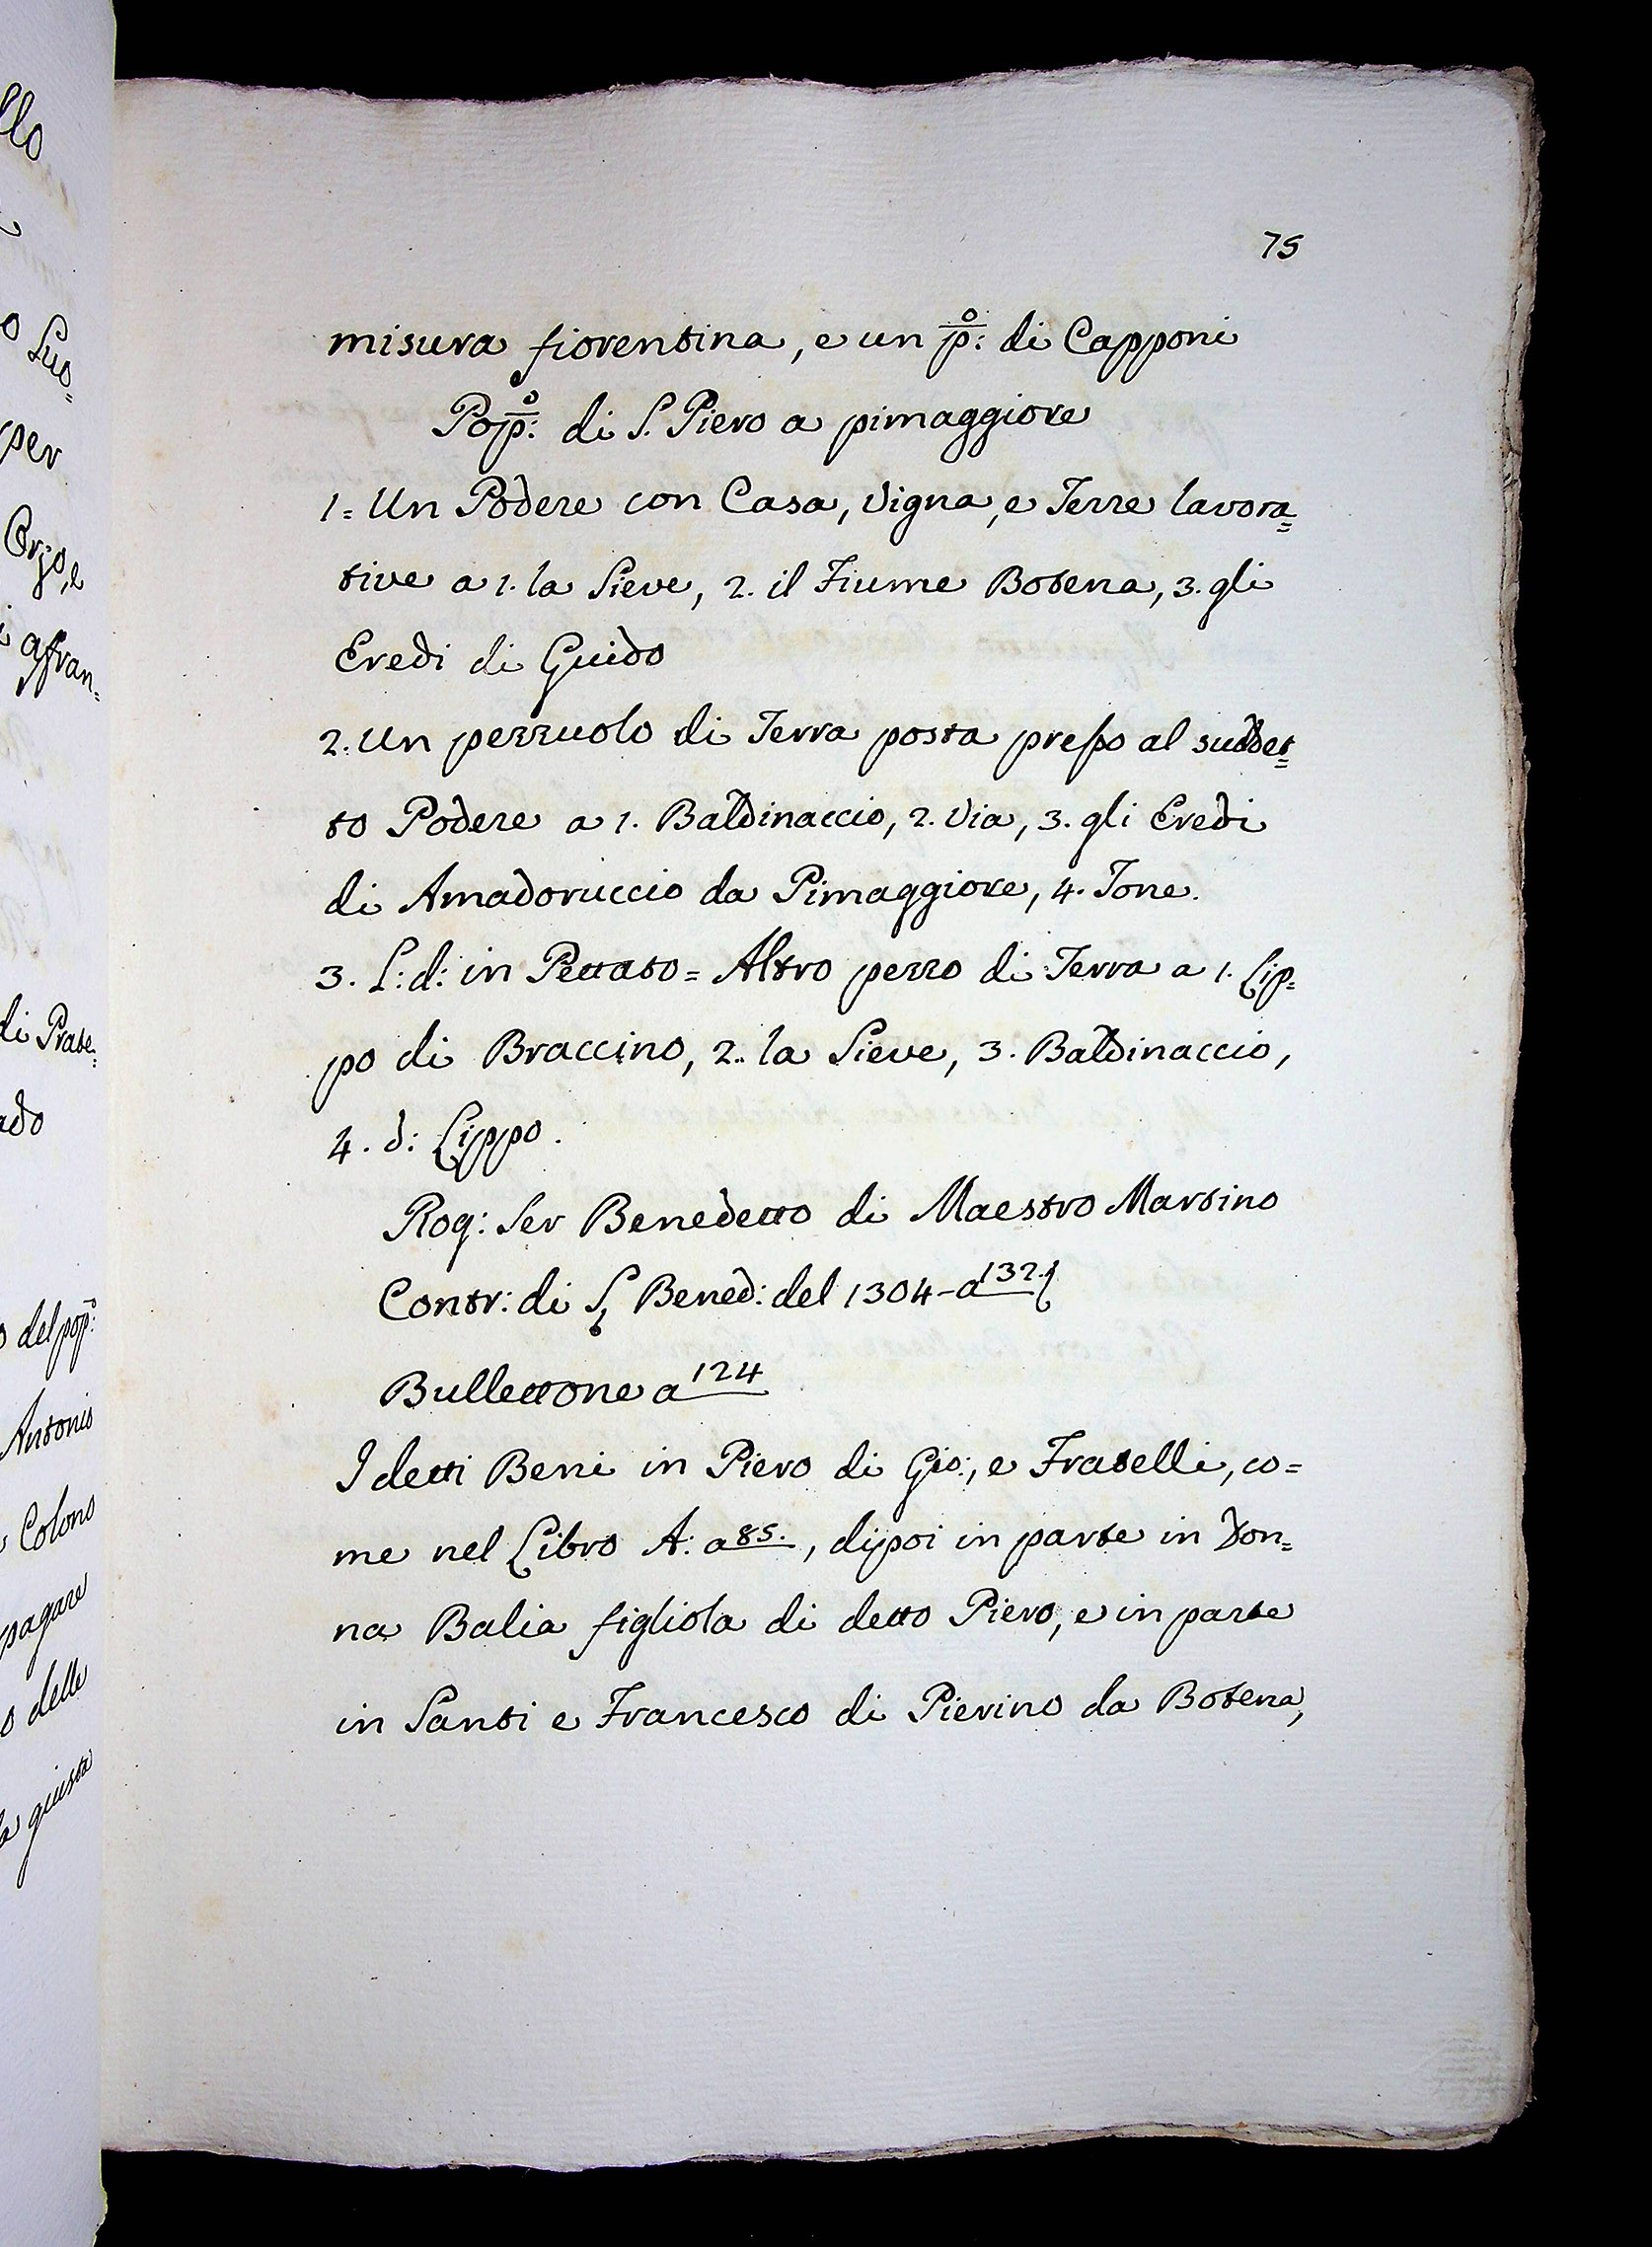 llo
o Luo=
per
Orjo, e
i afran=
di Prate=
ado
o del pop.o:
Antonio
Colono
pagare
o delle
la giusta
75
misura fiorentina, e un p.o: di Capponi
Pop.o: di S. Piero a pimaggiore
1= Un Podere con Casa, Vigna, e Terre lavora=
tive a 1. la Sieve, 2. il Fiume Botena, 3. gli
Eredi di Guido
2. Un pezzuolo di Terra posta presso al suddet=
to Podere a 1. Baldinaccio, 2. Via, 3. gli Eredi
di Amadoruccio da Pimaggiore, 4. Tone.
3. L: d: in Pettato = Altro pezzo di Terra a 1. Lip=
po di Braccino, 2. la Sieve, 3. Baldinaccio,
4. d: Lippo.
Rog: Ser Benedetto di Maestro Martino
Contr: di S, Bened: del 1304 - a 132.
Bullettone a 124
I detti Beni in Piero di Gio:, e Fratelli, co=
me nel Libro A: a 85., dipoi in parte in Don=
na Balia figliola di detto Piero, e in parte
in Santi e Francesco di Pierino da Botena,